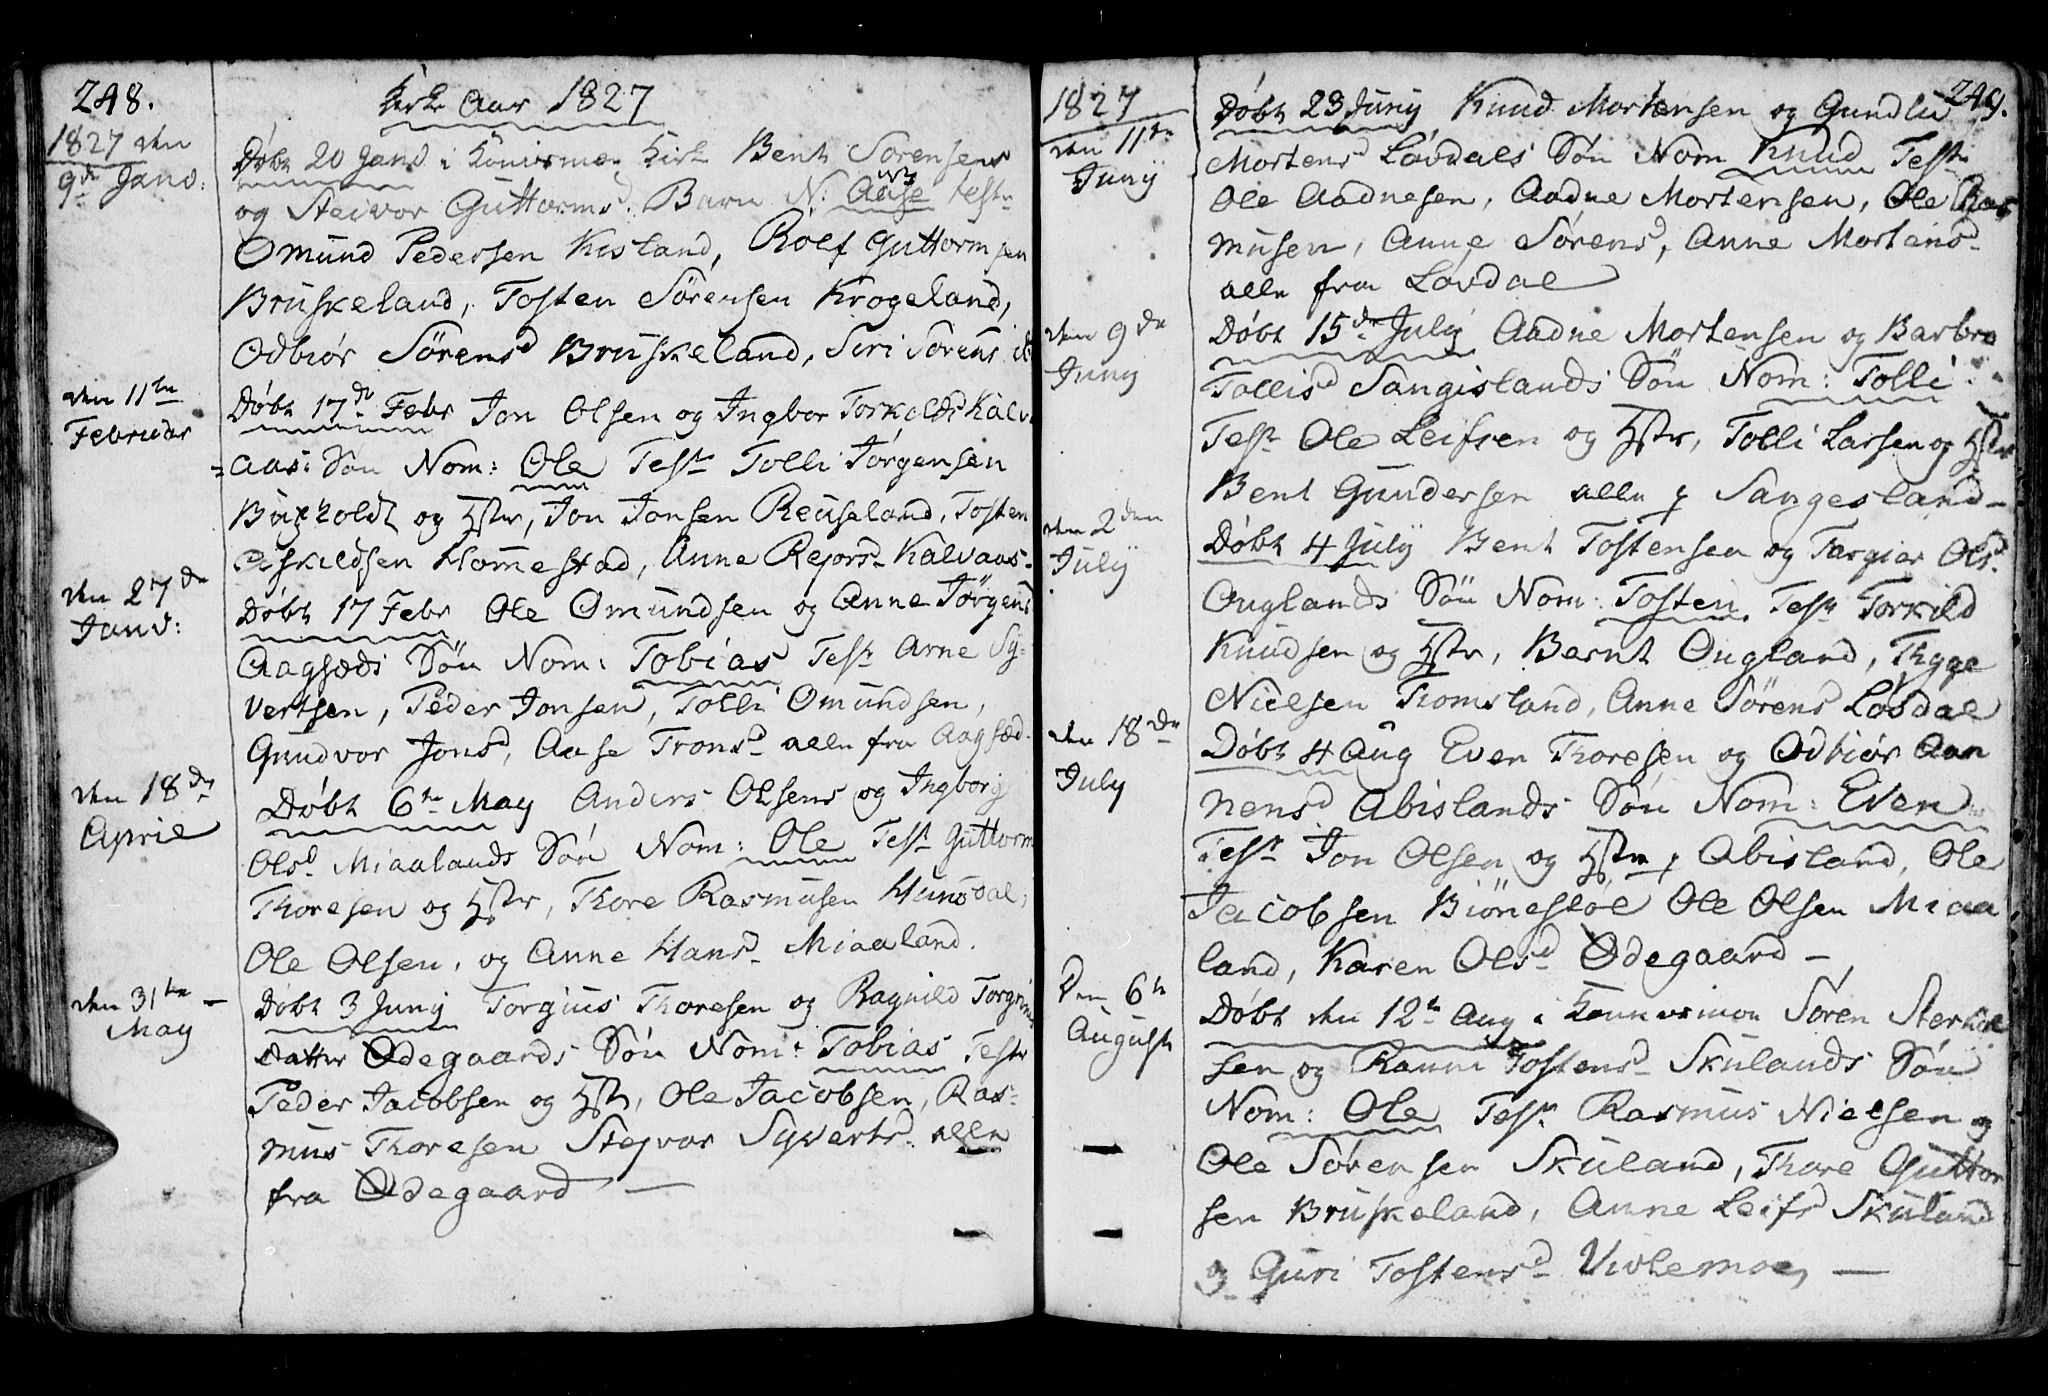 248.
Kirke Aar 1827
1827 den
9de Janv:
Døbt 20 Janv i Konismoe Kirk Bent Sørensens
og Steivor Guttormsd: Barn N: Aase Test:
Omund Pedersen Kisland, Rolf Guttormsen
Bruskeland, Tosten Sørensen Krogeland,
Odbiør Sørensd Bruskeland, Siri Sørens
den 11te
Februar
Døbt 17de Febr Jon Olsen og Ingbor Torkelds Kalv
=aas: Søn Nom: Ole Test Tolli Jørgensen
og Hstr, Jon Jonsen Reuseland, Tosten
Eskildsen Hommestad, Anne Rejorsd Kalvaas-
den 27de
Janv:
Døbt 17 Febr Ole Omundsen og Anne Jørgens
Aagsæds Søn Nom: Tobias Test Arne Sy=
vertsen, Peder Jonsen, Tolli Omundsen,
Gundvor Jonsd, Aase Tronsd alle fra Aagsæd-
den 18de
April
Døbt 6te May Anders Olsens og Ingborg
Olsd Miaalands Søn Nom: Ole Test Guttorm
Thoresen og Hstr, Thore Rasmusen Hunsdal,
Ole Olsen, og Anne Hansd Miaaland.
den 31te
May
Døbt 3 Juny Torgius Thoresen og Ragnild Torgrims
Datter Ødegaards Søn Nom: Tobias Test
Peder Jacobsen og Hstr, Ole Jacobsen, Ras=
mus Thoresen Stejvor Syvertsd. alle
fra Ødegaard —
249.
1827
den 11te
Juny
Døbt 23 Juny Knud Mortensen og Gundlu
Mortensd Lovdals Søn Nom Knud Test
Ole Aadnesen, Aadne Mortensen, Ole Ras
musen, Anne Sørensd, Anne Mortensd
alle fra Lovdal
den 9de
Juny
Døbt 15de July Aadne Mortensen og Barbro
Tollisd Sangislands Søn Nom: Tolli
Test Ole Leifsen og Hstr, Tolli Larsen og Hstr
Bent Gundersen alle p Sangesland-
den 2den
July
Døbt 4 July Bent Tostensen og Targier Olsd
Ouglands Søn Nom: Tosten Test Torkild
Knudsen og Hstr, Bernt Ougland, Thyge
Nielsen Tromsland, Anne Sørensd Løvdal
den 18de
July
Døbt 4 Aug Even Thoresen og Odbiør Aan
nensd Abislands Søn Nom: Even
Test Jon Olsen og Hstr p Abisland, Ole
Jacobsen Biønestøl Ole Olsen Miaa
land, Karen Olsd Ødegaard —
Den 6te
August
Døbt den 12te Aug i Søren Sterkel
sen og Ranni Tostensd Skulands Søn
Nom: Ole Test Rasmus Nielsen og
Ole Sørensen Skuland, Thore Guttor
sen Bruskeland, Anne Leifsd Skuland
og Guri Tostensd Vivlemoe, —